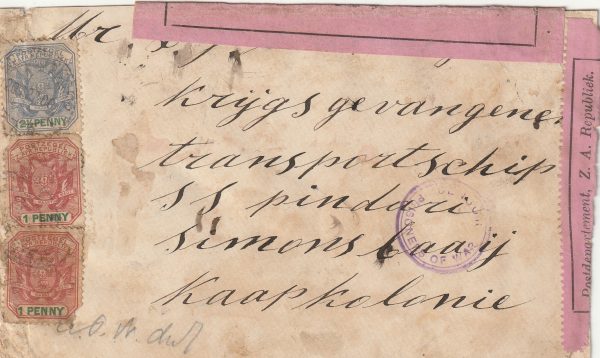 Mr
krijgsgevangenen
transportschip
SS pindari
Simonsbaaij
Kaapkolonie
2½ PENNY
1 PENNY
1 PENNY
OF WAR
Postdepartement, Z. A. Republiek.